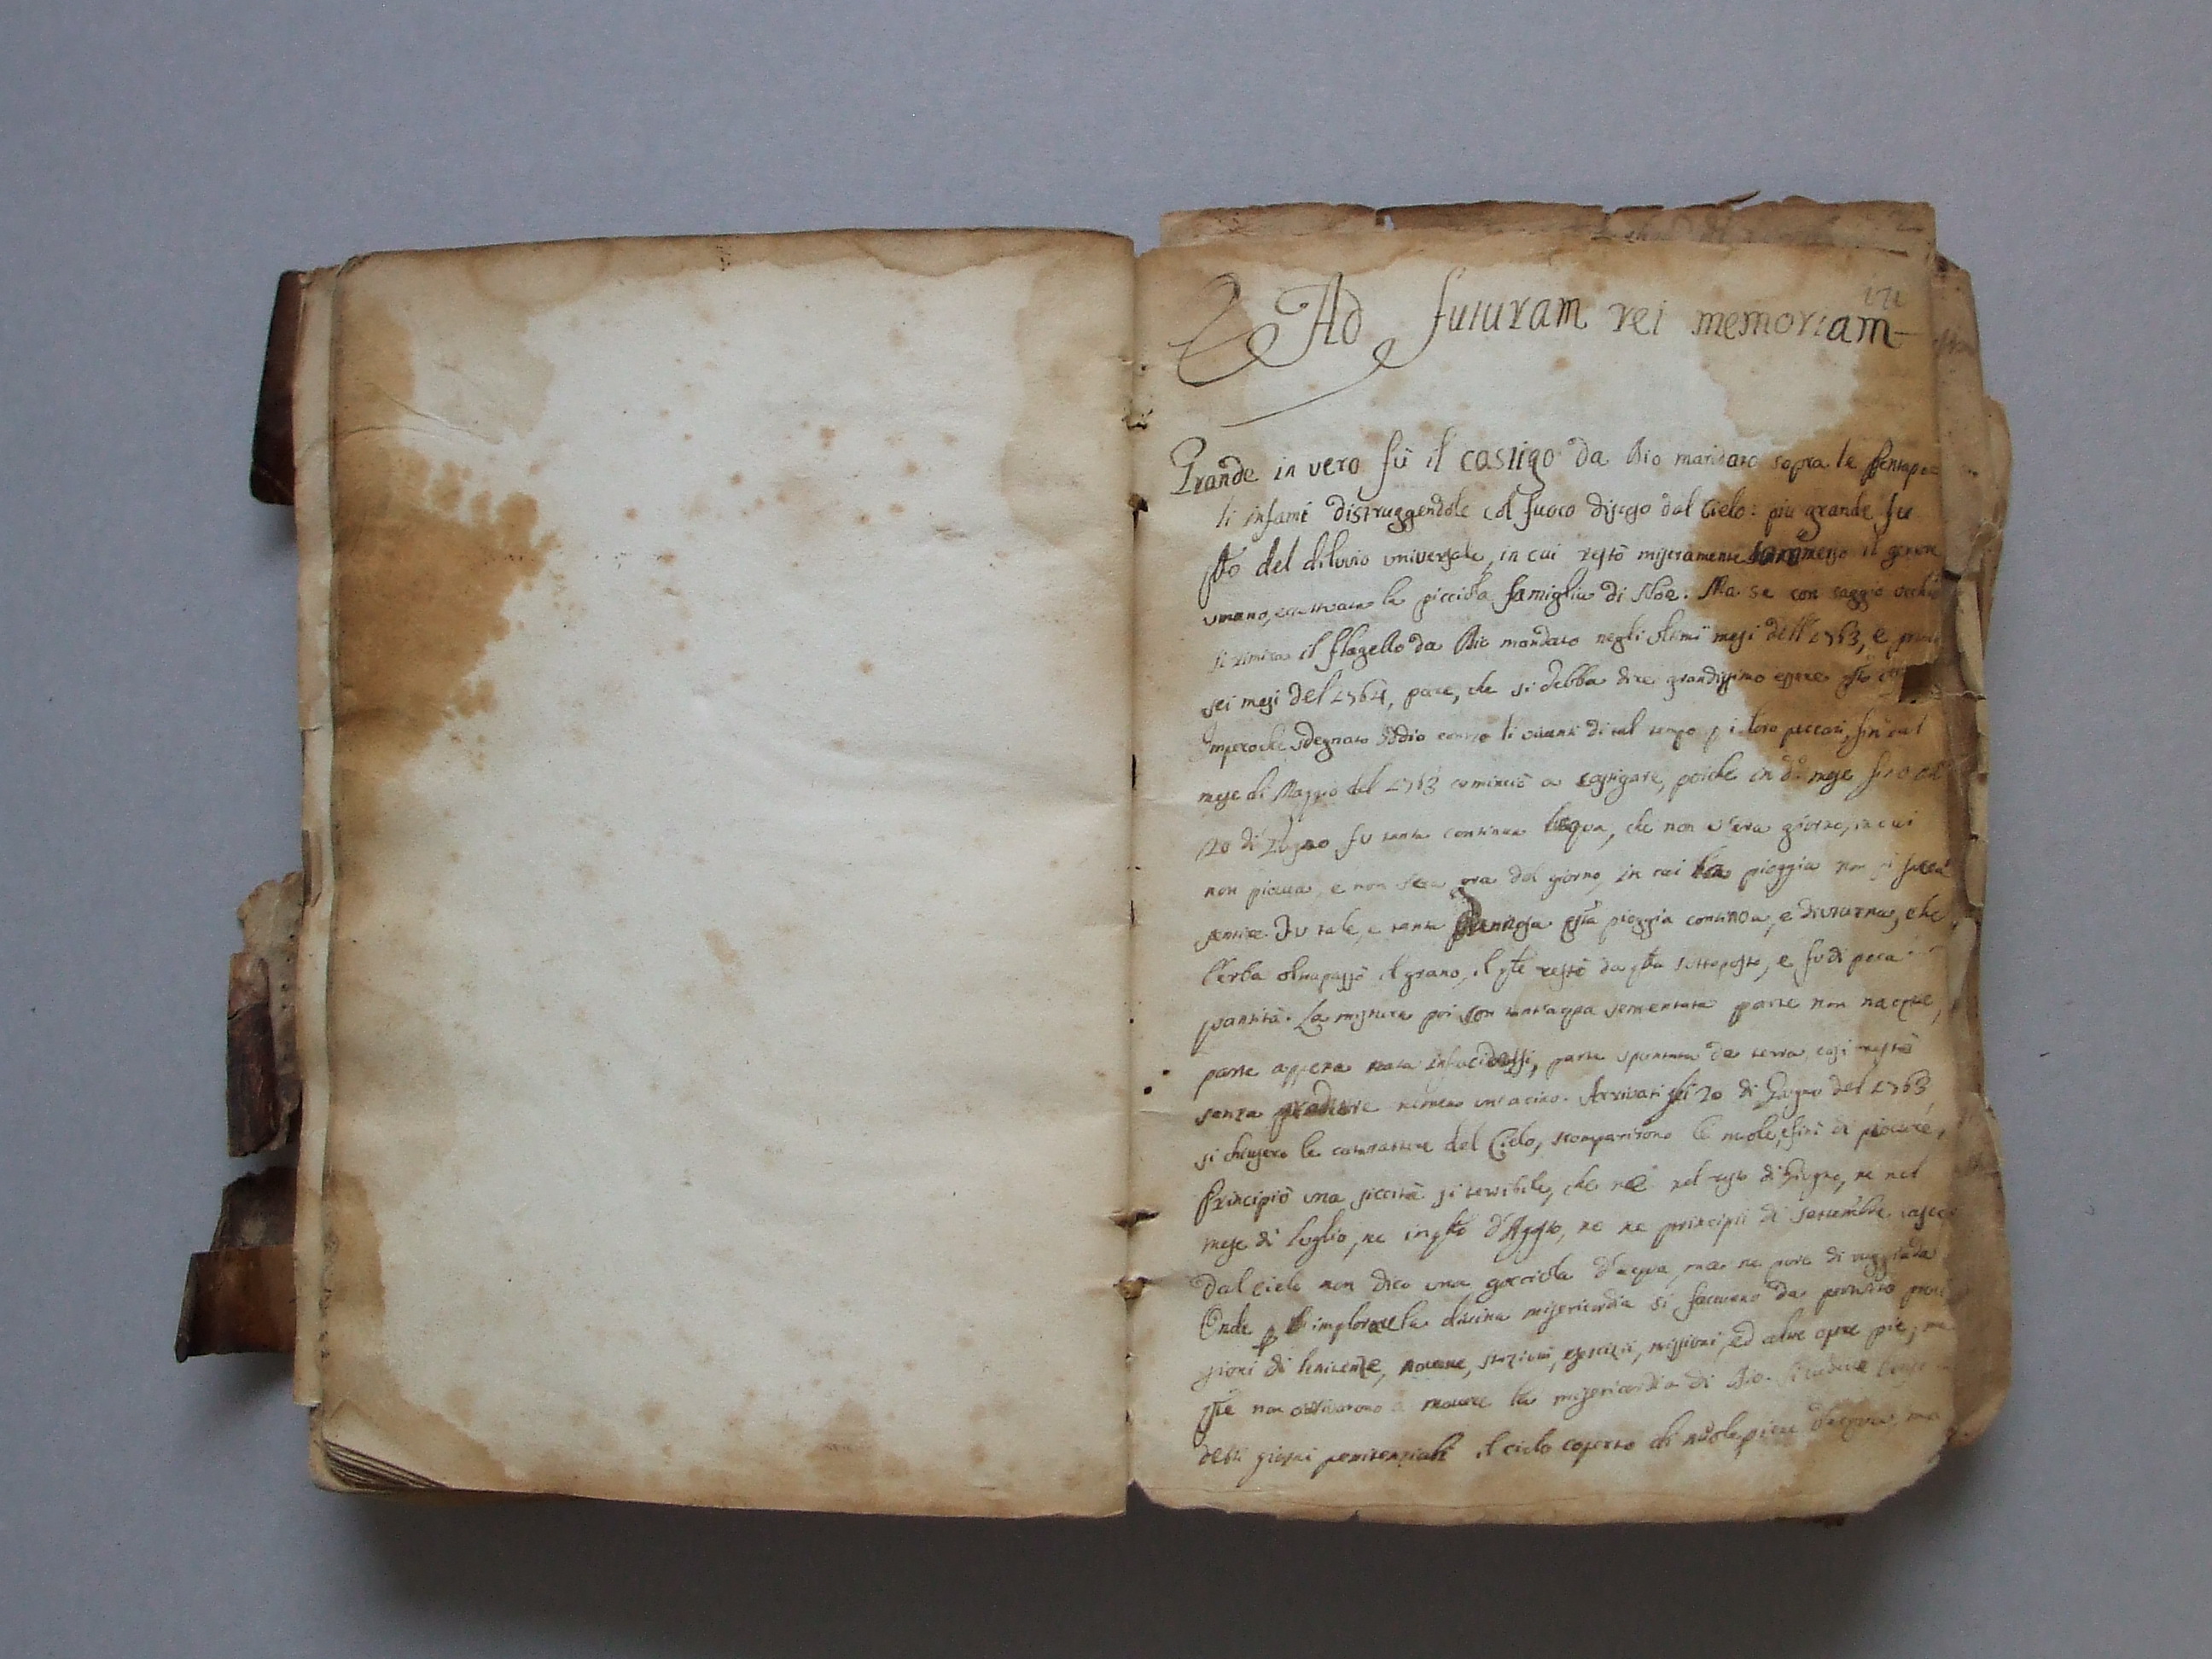 171
Ad futuram rei memoriam
Grande in vero fù il castigo da Dio mandato sopra le Pentapo
li infami distruggendole col fuoco disceso dal Cielo: più grande fu
del diluvio universale, in cui restò miseramente sommerso il genere
umano, eccettuata la picciola famiglia di Noè. Ma se con saggio occhio
si rimira il flagello da Dio mandato negli ultimi mesi dell' 1763, e primi
sei mesi del 1764, pare, che si debba dire grandissimo essere
Imperoche sdegnato Iddio contro li viventi di tal tempo p i loro peccati, fin dal
mese di Maggio del 1763 cominciò a castigare, poiche in do mese fino alli
20 di Iugno fu tanta continua l'acqua, che non v'era giorno, in cui
non pioveva, e non v'era ora del giorno, in cui la pioggia non si facea
sentire. Fu tale, e tanta qsta pioggia continoa, e diuturna, che
l'erba oltrapassò il grano, il qle restò da qlla sottoposto, e fu di poca
quantità. La mistura poi con tant'acqua sementata parte non nacque,
parte appena nata parte spuntata da terra, così restò
senza produrre nemeno un'acino. Arrivati li 20 di Giugno del 1763
si chiusero le cataratte del Cielo, scomparirono le nuole, finì di piovere,
Principiò una siccità sì terribile, che nè nel resto di Giugno, ne nel
mese di luglio, ne in qllo d'Agsto, ne ne principii di Settembre
dal cielo non dico una gocciola d'acqua, ma ne pure di ruggiada
Onde p implorare la divina misericordia si facevano da pertutto proces
sioni di penitenze, novene, esercizii, missioni, ed altre opere pie, ma
qste non arrivarono a movere la misericordia di Dio. Si vedeva
detti giorni penitenziali il cielo coperto di nuole piene d'acqua, ma